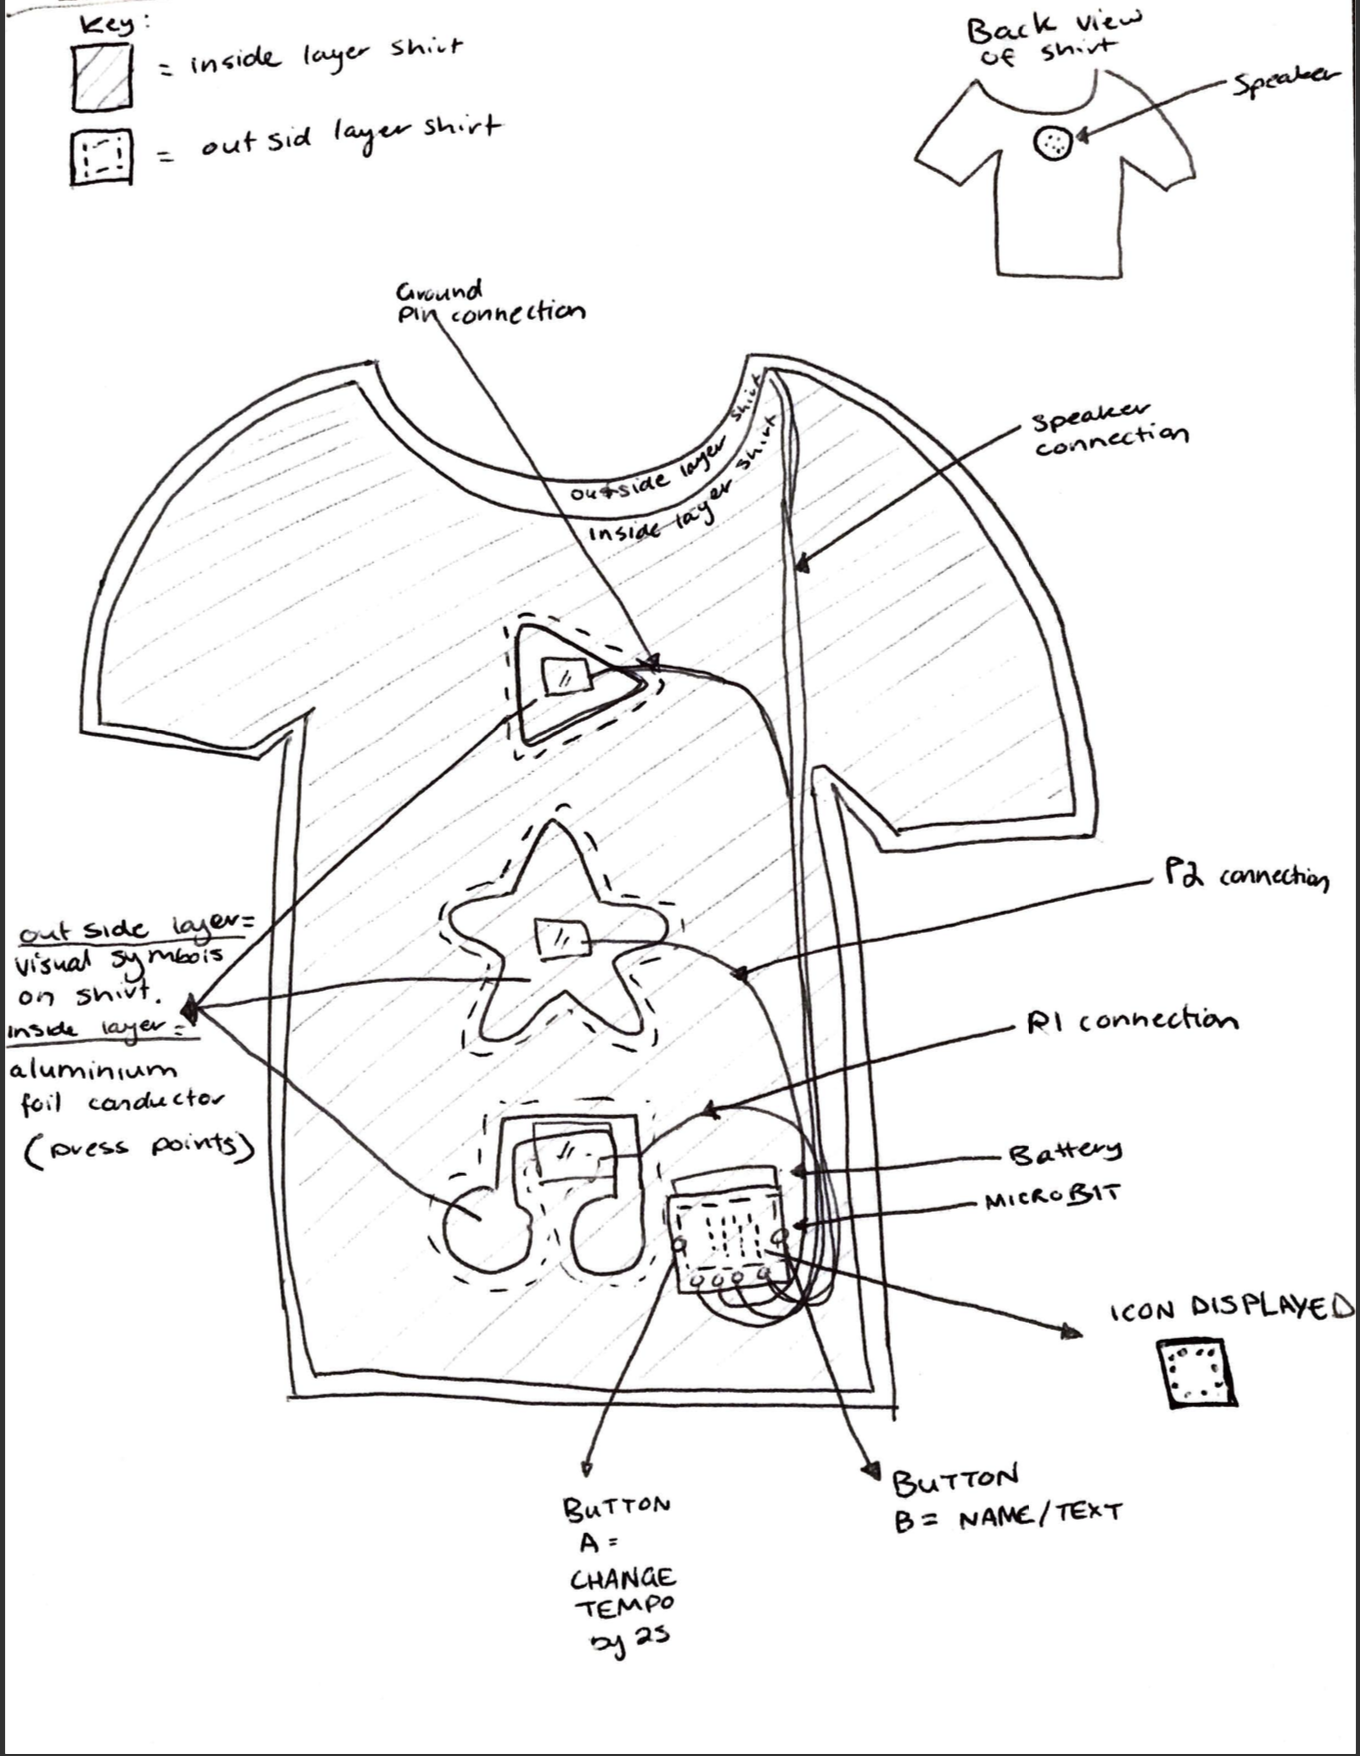 Key:
= inside layer shirt
= out sid layer shirt
Back view
of shirt
Speaker
Ground
Pin connection
outside layer shirt
inside layer shirt
Speaker
connection
P2 connection
out side layer=
visual symbols
on shirt.
inside layer=
aluminium
foil conductor
(press points)
P1 connection
Battery
MICROBIT
ICON DISPLAYED
BUTTON
A =
CHANGE
TEMPO
by 25
BUTTON
B = NAME/TEXT